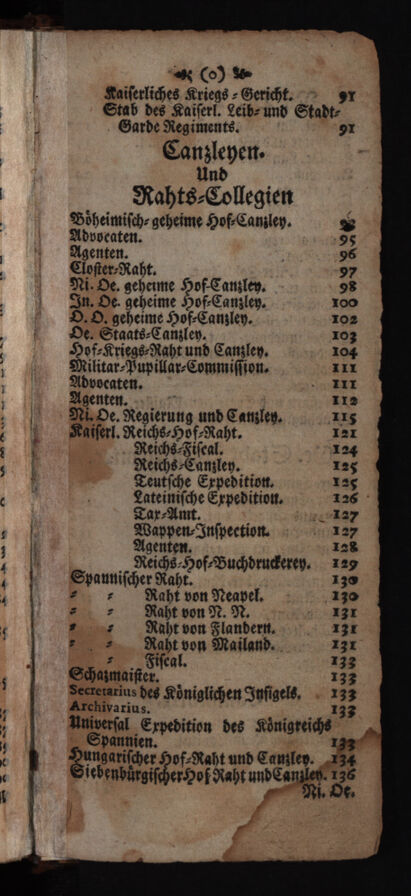 (o)
Kaiserliches Kriegs-Gericht. 91
Stab des Kaiserl. Leib- und Stadt-
Garde Regiments. 91
Canzleyen.
Und
Rahts-Collegien
Böheimisch-geheime Hof-Canzley.
Advocaten. 95
Agenten. 96
Closter-Raht. 97
Ni. Oe. geheime Hof-Canzley. 98
In. Oe. geheime Hof-Canzley. 100
O. O. geheime Hof-Canzley. 102
Oe. Staats-Canzley. 103
Hof-Kriegs-Raht und Canzley. 104
Militar-Pupillar-Commission. 111
Advocaten. 111
Agenten. 112
Ni. Oe. Regierung und Canzley. 115
Kaiserl. Reichs-Hof-Raht. 121
Reichs-Fiscal. 124
Reichs-Canzley. 125
Teutsche Expedition. 125
Lateinische Expedition. 126
Tax-Amt. 127
Wappen-Inspection. 127
Agenten. 128
Reichs-Hof-Buchdruckerey. 129
Spannischer Raht. 130
= = Raht von Neapel. 130
= = Raht von N. N. 131
= = Raht von Flandern. 131
= = Raht von Mailand. 131
= Fiscal. 133
Schazmaister. 133
Secretarius des Königlichen Insigels. 133
Archivarius. 133
Universal Expedition des Königreichs
Spannien. 133
Hungarischer Hof-Raht und Canzley. 134
Siebenbürgischer Hof Raht und Canzley. 136
Ni. Oe.